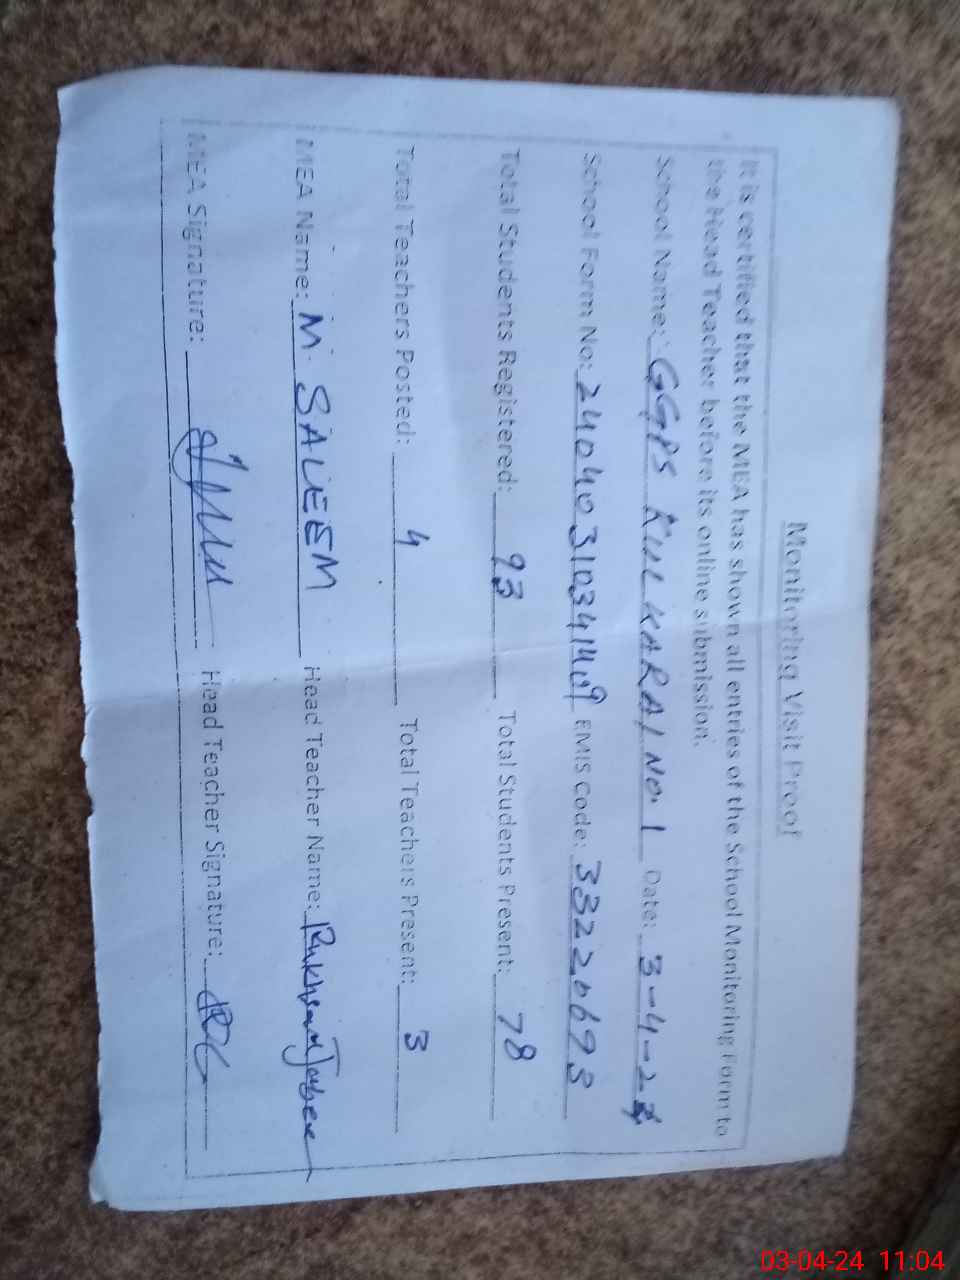 Monitoring Visit Proof
It is certified that the MEA has shown all entries of the School Monitoring Form to
the Head Teacher before its online submission.
School Name: GGPS KULKARAI NO. 1 Date: 3-4-24
School Form No: 2404031034149 EMIS Code: 33220693
Total Students Registered: 93 Total Students Present: 78
Total Teachers Posted: 4 Total Teachers Present: 3
MEA Name: M. SALEEM Head Teacher Name: Rukhsana
MEA Signature: Head Teacher Signature:
03-04-24 11:04